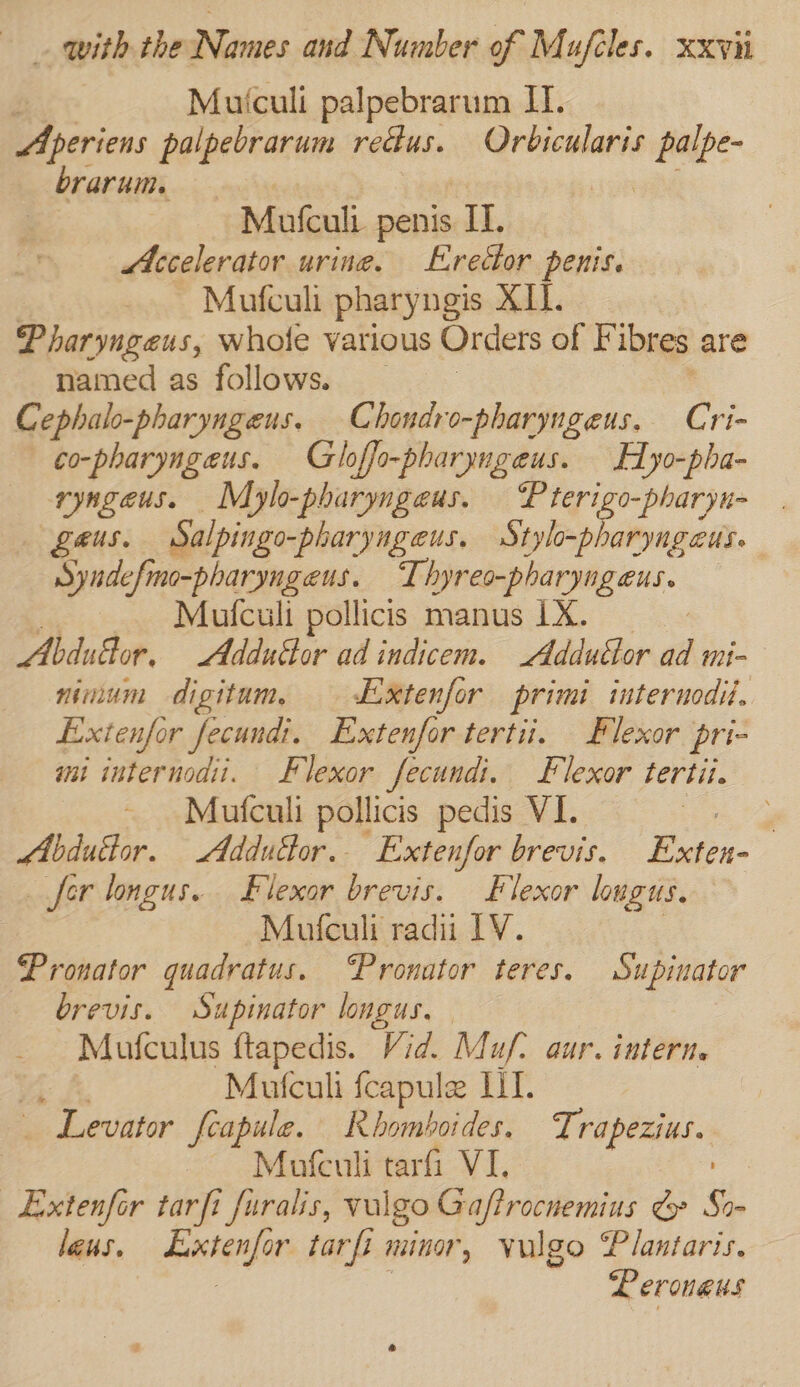 with the Names and Number of Muſcles. xxvii
Muſculi palpebrarum II.
Aperiens palpebrarum rectus. Orbicularis palpe-
brarum.
Muſculi penis II.
Accelerator urinæ. Erector penis.
Muſculi pharyngis XII.
Pharyngæus, whoſe various Orders of Fibres are
named as follows.
Cephalo-pharyngæus. Chondro-pharyngæus. Cri-
co-pharyngæus. Gloſſo-pharyngæus. Hyo-pha-
ryngæus. Mylo-pharyngæus. Pterigo-pharyn-
gæus. Salpingo-pharyngæus. Stylo-pharyngæus.
Syndeſmo-pharyngæus. Thyreo-pharyngæus.
Muſculi pollicis manus IX.
Abductor. Adductor ad indicem. Adductor ad mi-
nimum digitum. Extenſor primi internodii.
Extenſor ſecundi. Extenſor tertii. Flexor pri-
mi internodii. Flexor ſecundi. Flexor tertii.
Muſculi pollicis pedis VI.
Abductor. Adductor. Extenſor brevis. Exten-
ſor longus. Flexor brevis. Flexor longus.
Muſculi radii IV.
Pronator quadratus. Pronator teres. Supinator
brevis. Supinator longus.
Muſculus ſtapedis. Vid. Muſ. aur. intern.
Muſculi ſcapulæ III.
Levator ſcapulæ. Rhomboides. Trapezius.
Muſculi tarſi VI.
Extenſor tarſi ſuralis, vulgo Gaſtrocnemius & So-
læus. Extenſor tarſi minor, vulgo Plantaris.
Peronæus